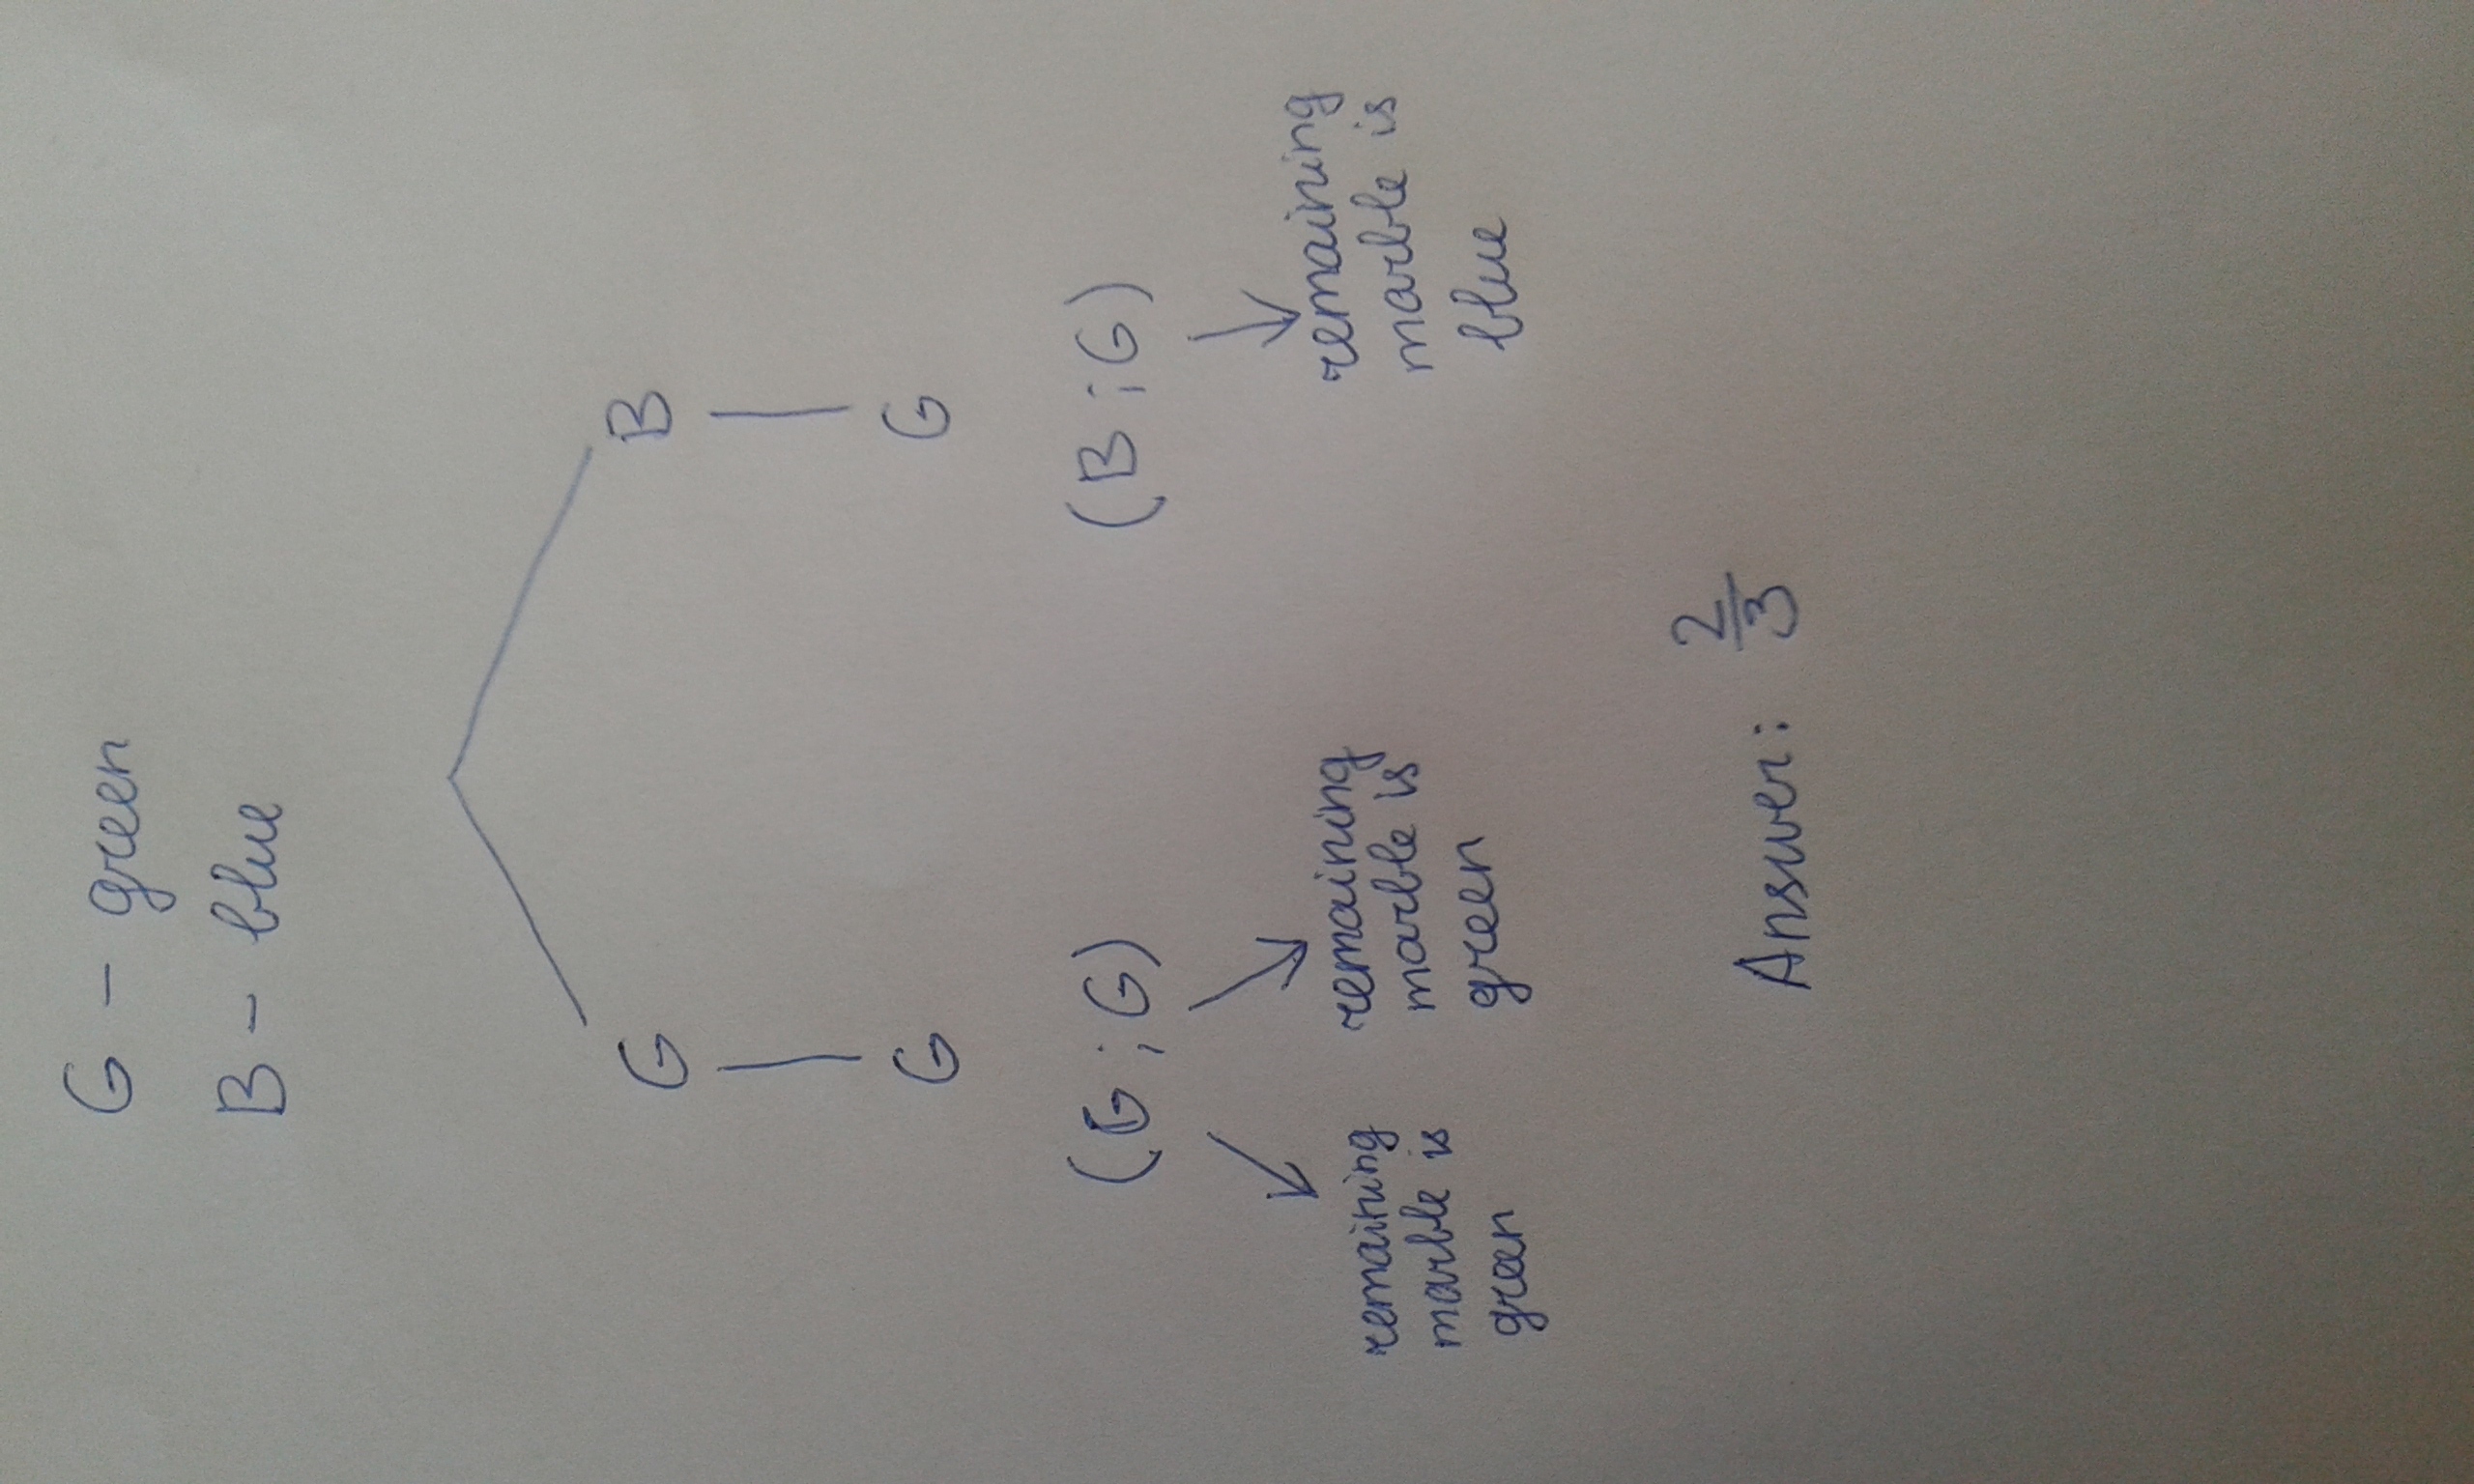 G - green
B - blue
G B
G G
(G ; G) (B ; G)
remaining marble is green
remaining marble is green
remaining marble is blue
Answer: 2/3